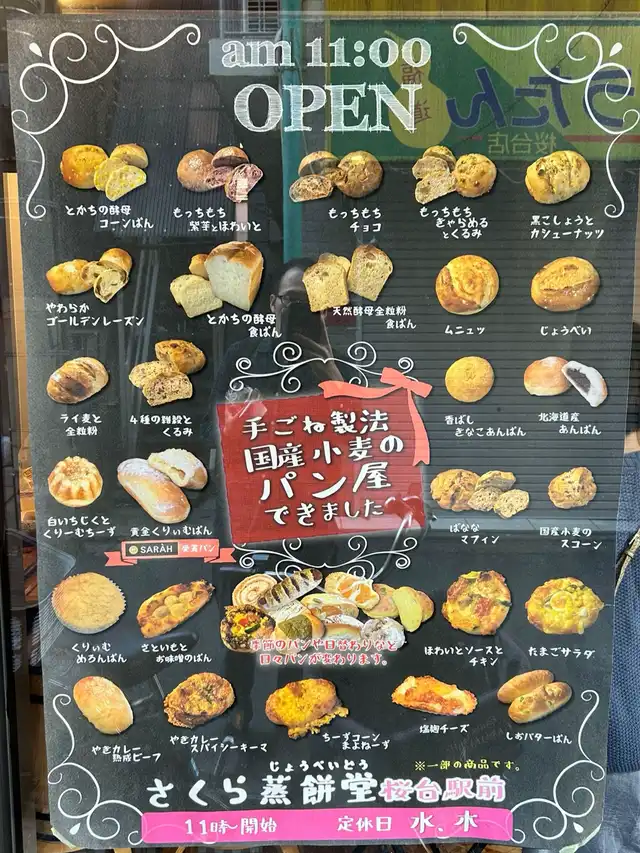 am 11:00
OPEN
うたん
桜台店
とかちの酵母
コーンぱん
もっちもち
紫芋とほわいと
もっちもち
チョコ
もっちもち
きゃらめる
とくるみ
黒こしょうと
カシューナッツ
やわらか
ゴールデンレーズン
とかちの酵母
食ぱん
天然酵母全粒粉
食ぱん
ムニュッ
じょうぺい
ライ麦と
全粒粉
4種の雑穀と
くるみ
香ばし
きなこあんぱん
北海道産
あんぱん
手ごね製法
国産小麦の
パン屋
できました
白いちじくと
くりーむちーず
黄金くりぃむぱん
SARAH 受賞パン
ばなな
マフィン
国産小麦の
スコーン
くりぃむ
めろんぱん
さといもと
お味噌のぱん
季節のパンや日替わりなど
日々パンが変わります。
ほわいとソースと
チキン
たまごサラダ
やきカレー
熟成ビーフ
やきカレー
スパイシーキーマ
ちーずコーン
まよねーず
塩麹チーズ
しおバターぱん
※一部の商品です。
じょうべいとう
さくら蒸餅堂桜台駅前
11時~開始 定休日 水、木